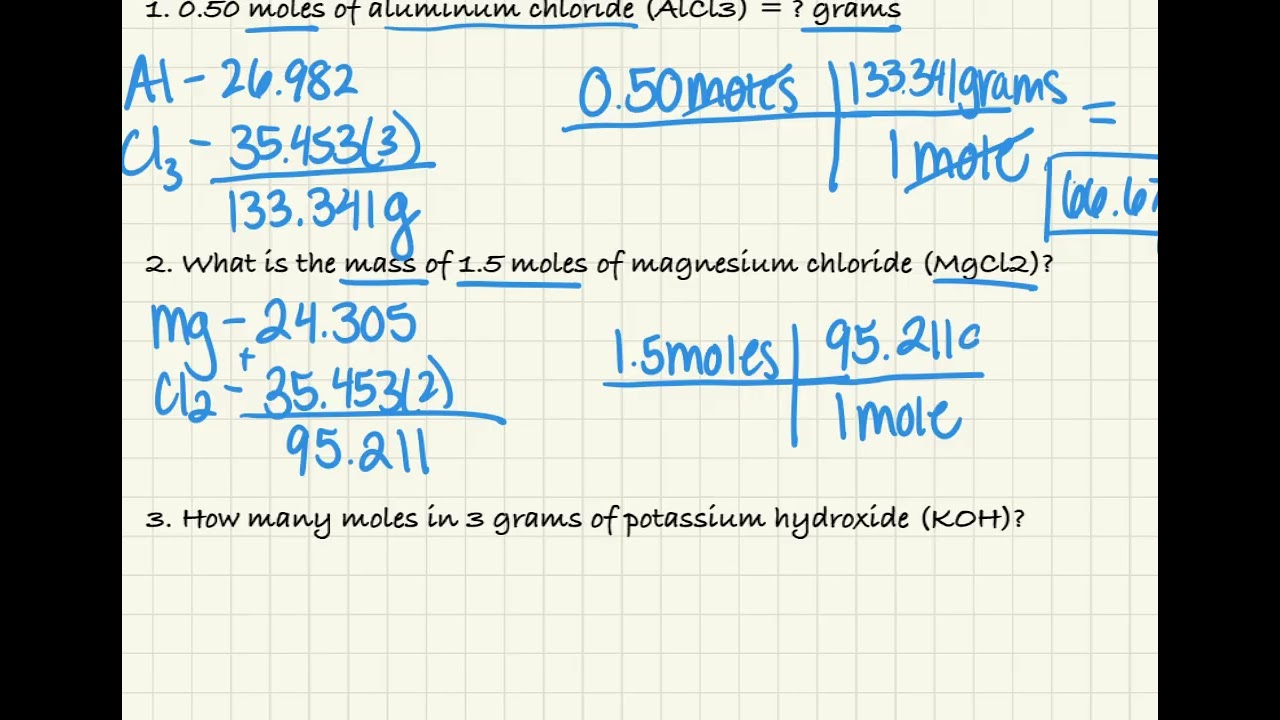 1. 0.50 moles of aluminum chloride (AlCl3) = ? grams
Al - 26.982
Cl3 - 35.453(3)
133.341g
0.50 moles 133.341grams =
1 mole
66.67
2. What is the mass of 1.5 moles of magnesium chloride (MgCl2)?
mg - 24.305
+
Cl2 - 35.453(2)
95.211
1.5moles 95.211
1 mole
3. How many moles in 3 grams of potassium hydroxide (KOH)?